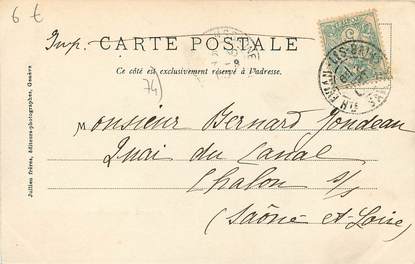 6 €
Imp. CARTE POSTALE
Ce côté est exclusivement réservé à l'adresse.
74
Monsieur Bernard Jondeau
Quai du Canal
Chalon s/s
(Saône et-Loire)
Jullien frères, éditeurs-photographes, Genève
EVIAN-LES-BAINS